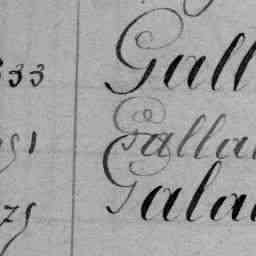 33 Gall
51 Galla
75 Gala